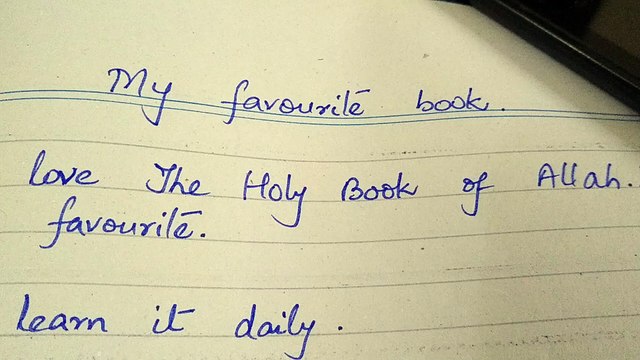 My favourite book.
love The Holy Book of Allah.
favourite.
learn it daily.